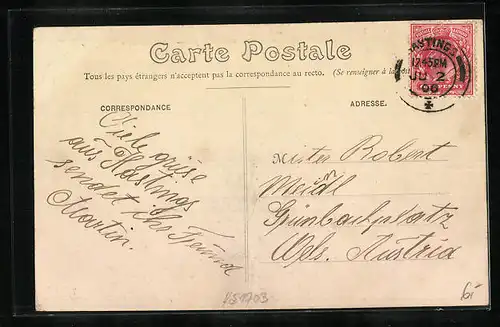 Carte Postale
Tous les pays étrangers n'acceptent pas la correspondance au recto. (Se renseigner à la
CORRESPONDANCE
ADRESSE.
HASTINGS
12.45PM
JU 2
PENNY
Viele grüse
aus Hastings
sendet ihr Freund
Martin
Mister Robert
Meidl
Grünbachplatz
Wels. Austria
bi